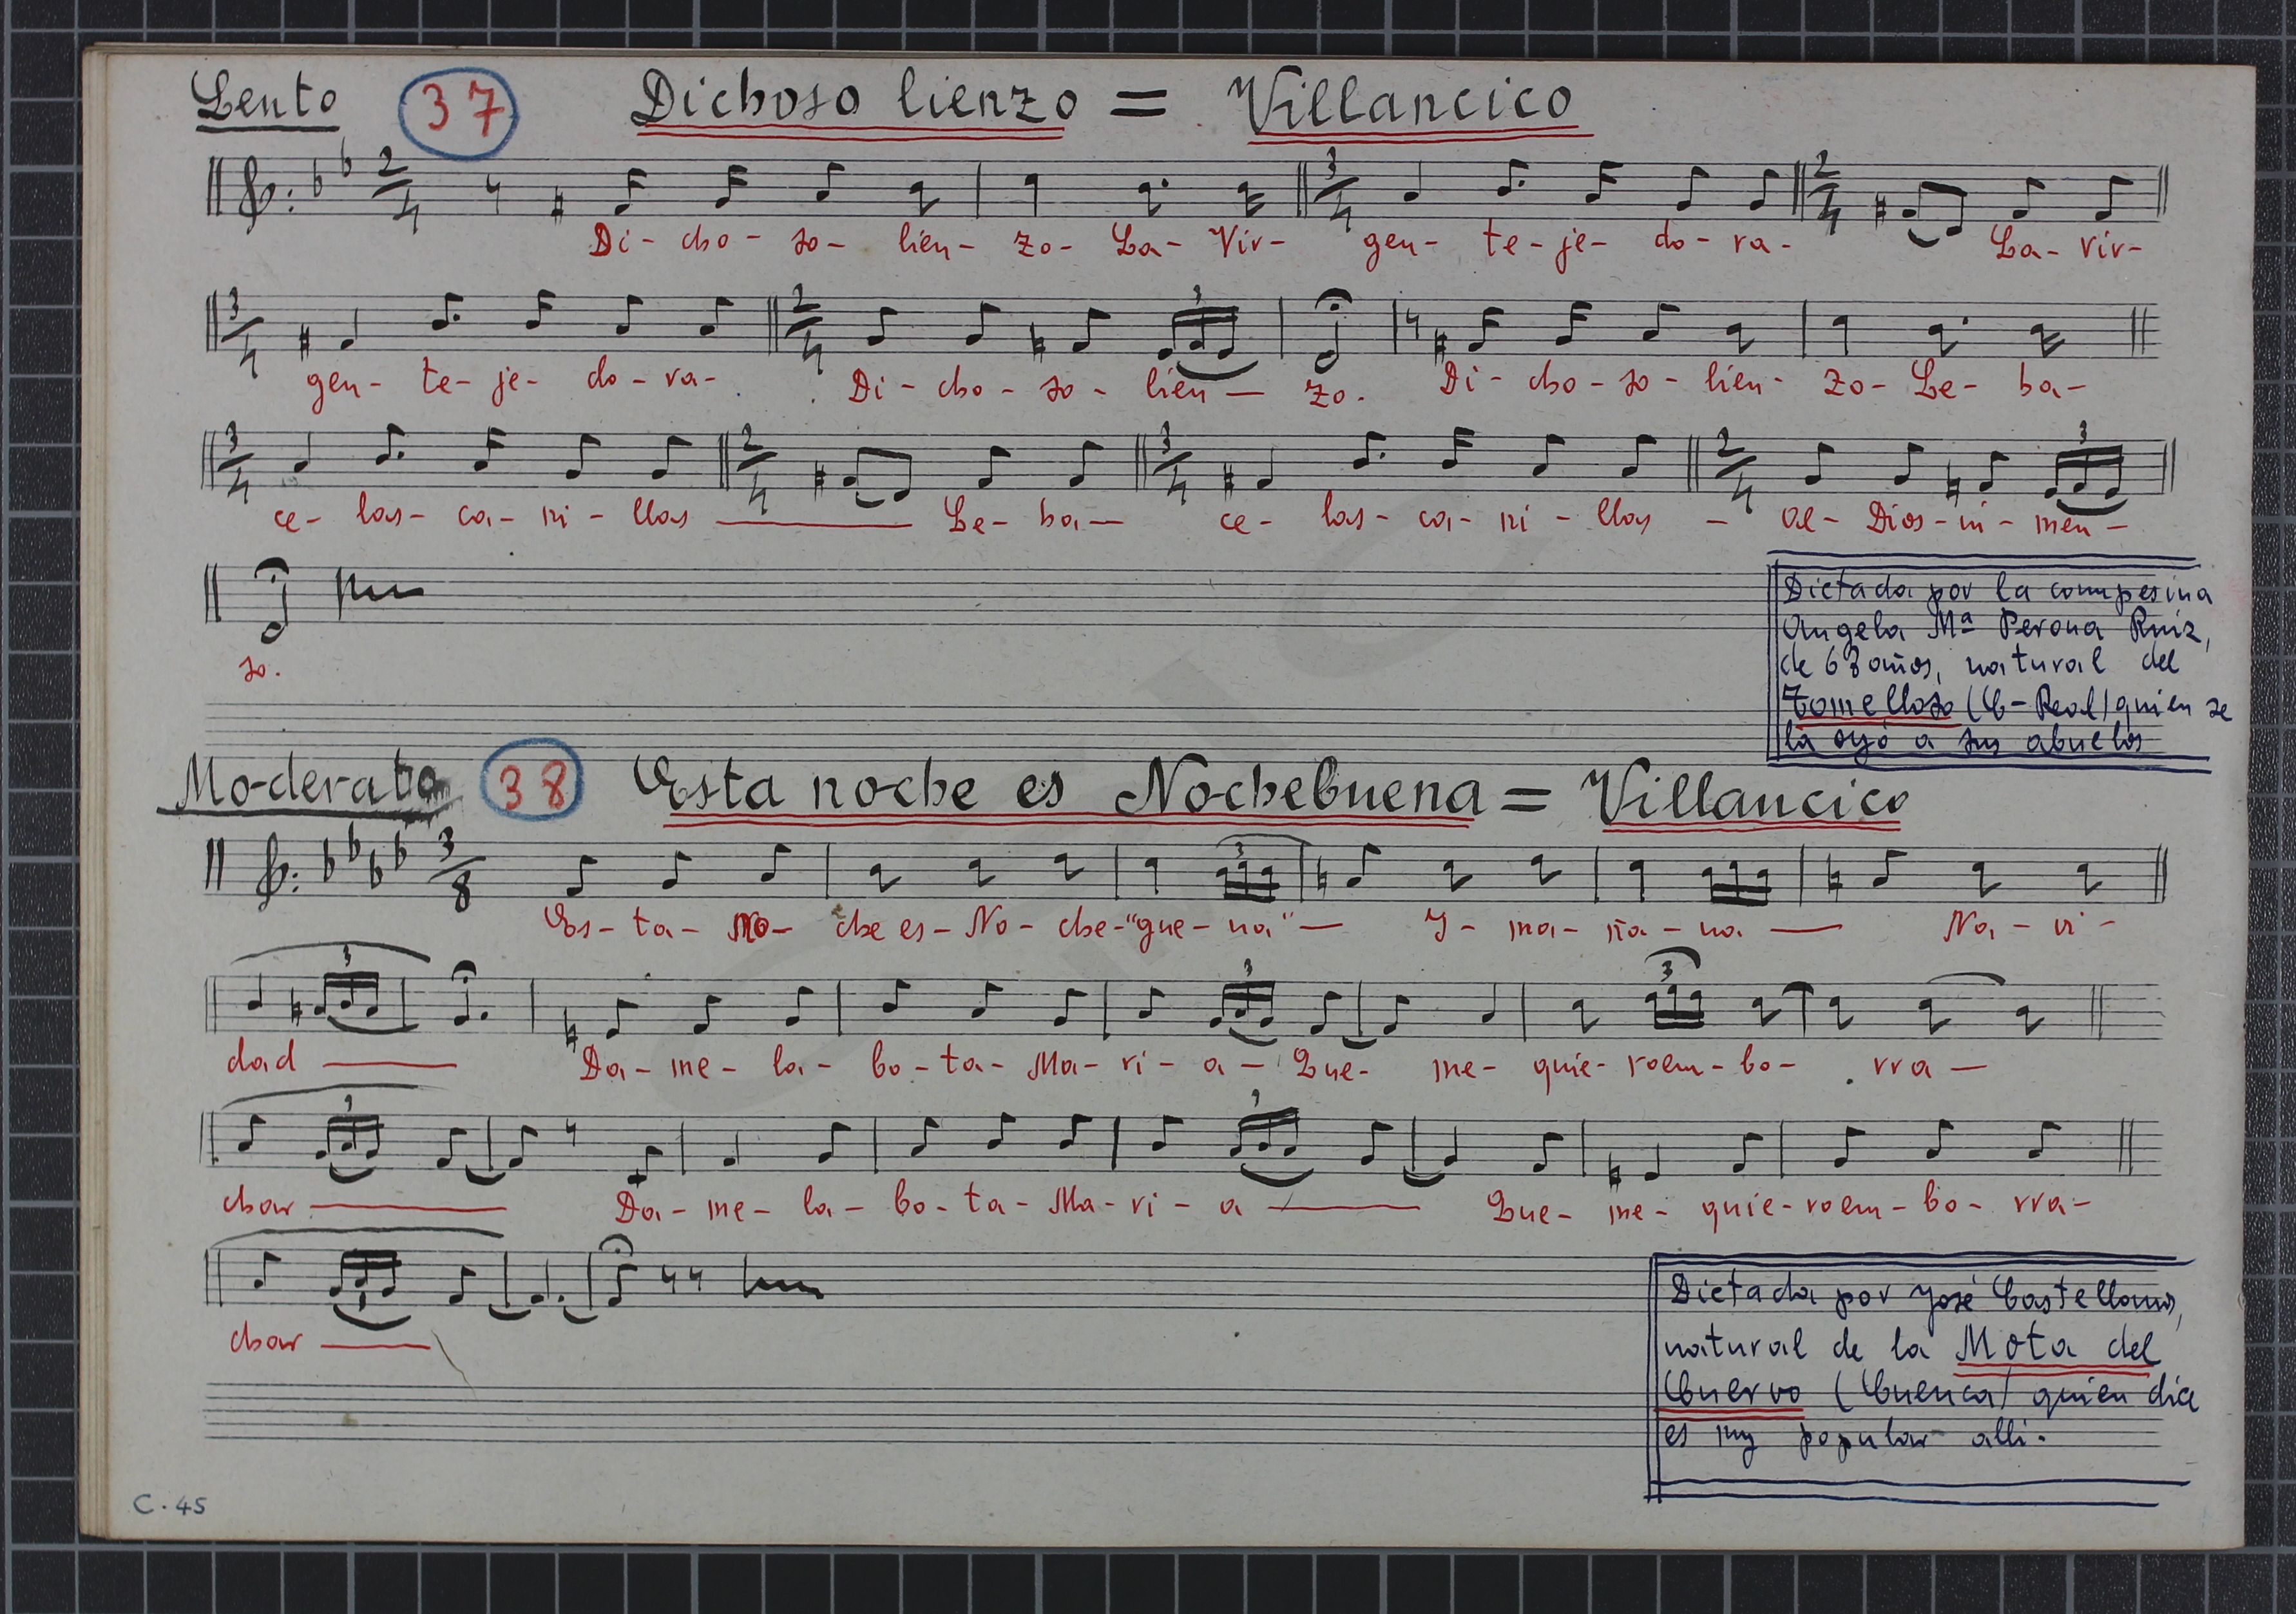 Lento 37 Dichoso lienzo = Villancico
2/4 3/4 2/4
Di- cho- so- lien- zo- La- Vir- gen- te- je- do- ra- La- vir-
3/4 2/4 3
gen- te- je- do- ra- Di- cho- so- lien- zo. Di- cho- so- lien- zo- Le- ba-
3/4 2/4 3/4 2/4 3
ce- las- ca- ni- llas Le- ba- ce- las- ca- ni- llas - al- Dios- in- men-
so.
Dictada por la campesina
Angela Mª Perona Ruiz,
de 63 años, natural del
Tomelloso (C-Real) quien se
la oyó a sus abuelos
Moderato 38 Esta noche es Nochebuena = Villancico
3/8 3
Es- ta- No- che es- No- che- "gue- na" Y- ma- ña- na Na- vi-
3 3 3
dad Da- me- la- bo- ta- Ma- ri- a- Que- me- quie- roem- bo- rra-
3 3
char Da- me- la- bo- ta- Ma- ri- a Que- me- quie- roem- bo- rra-
char
Dictada por José Castellanos,
natural de la Mota del
Cuervo (Cuenca) quien dice
es muy popular alli.
C. 45